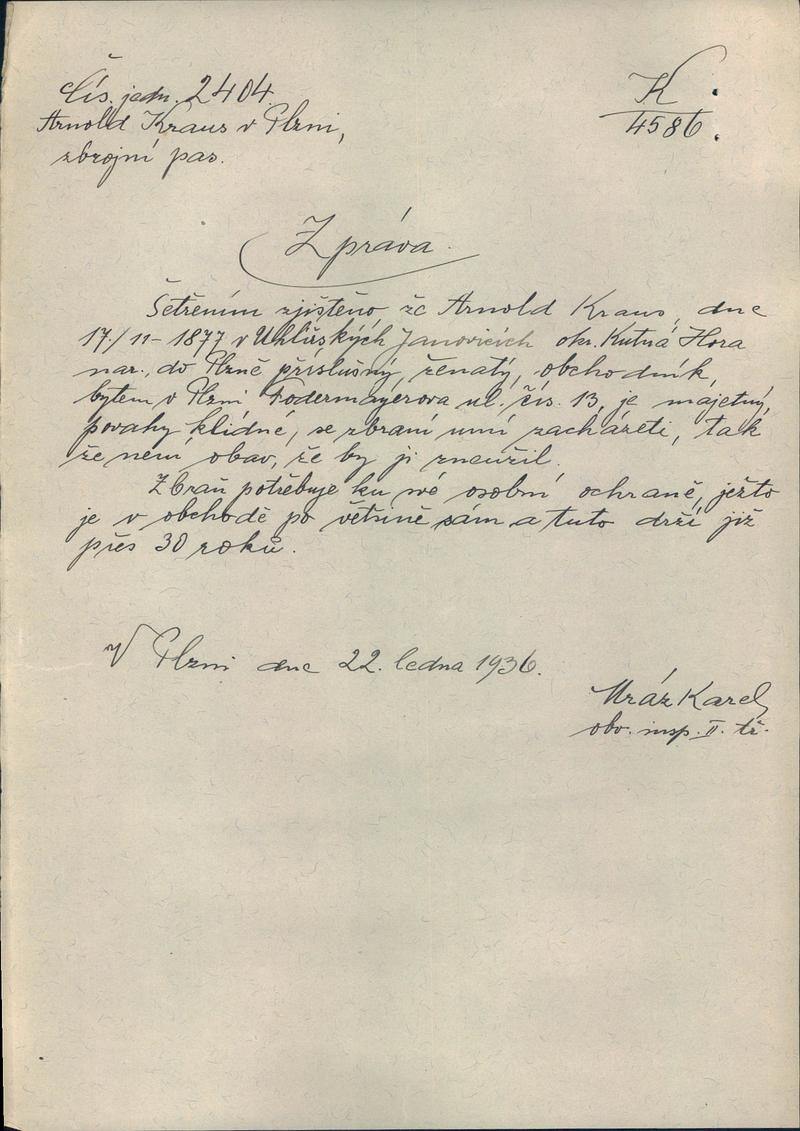 Čís. jedn. 2404
K
4586
Arnold Kraus v Plzni,
zbrojní pas.
Zpráva.
Šetřením zjištěno, že Arnold Kraus, dne
17/11-1877 v Uhlířských Janovicích okr. Kutná Hora
nar., do Plzně příslušný, ženatý, obchodník,
bytem v Plzni Fodermayerova ul. čís. 13, je majetný,
povahy klidné, se zbraní umí zacházeti, tak
že není obav, že by ji zneužil.
Zbraň potřebuje ku své osobní ochraně, ježto
je v obchodě po většině sám a tuto drží již
přes 30 roků.
V Plzni dne 22. ledna 1936.
Mráz Karel
obv. insp. II. tř.